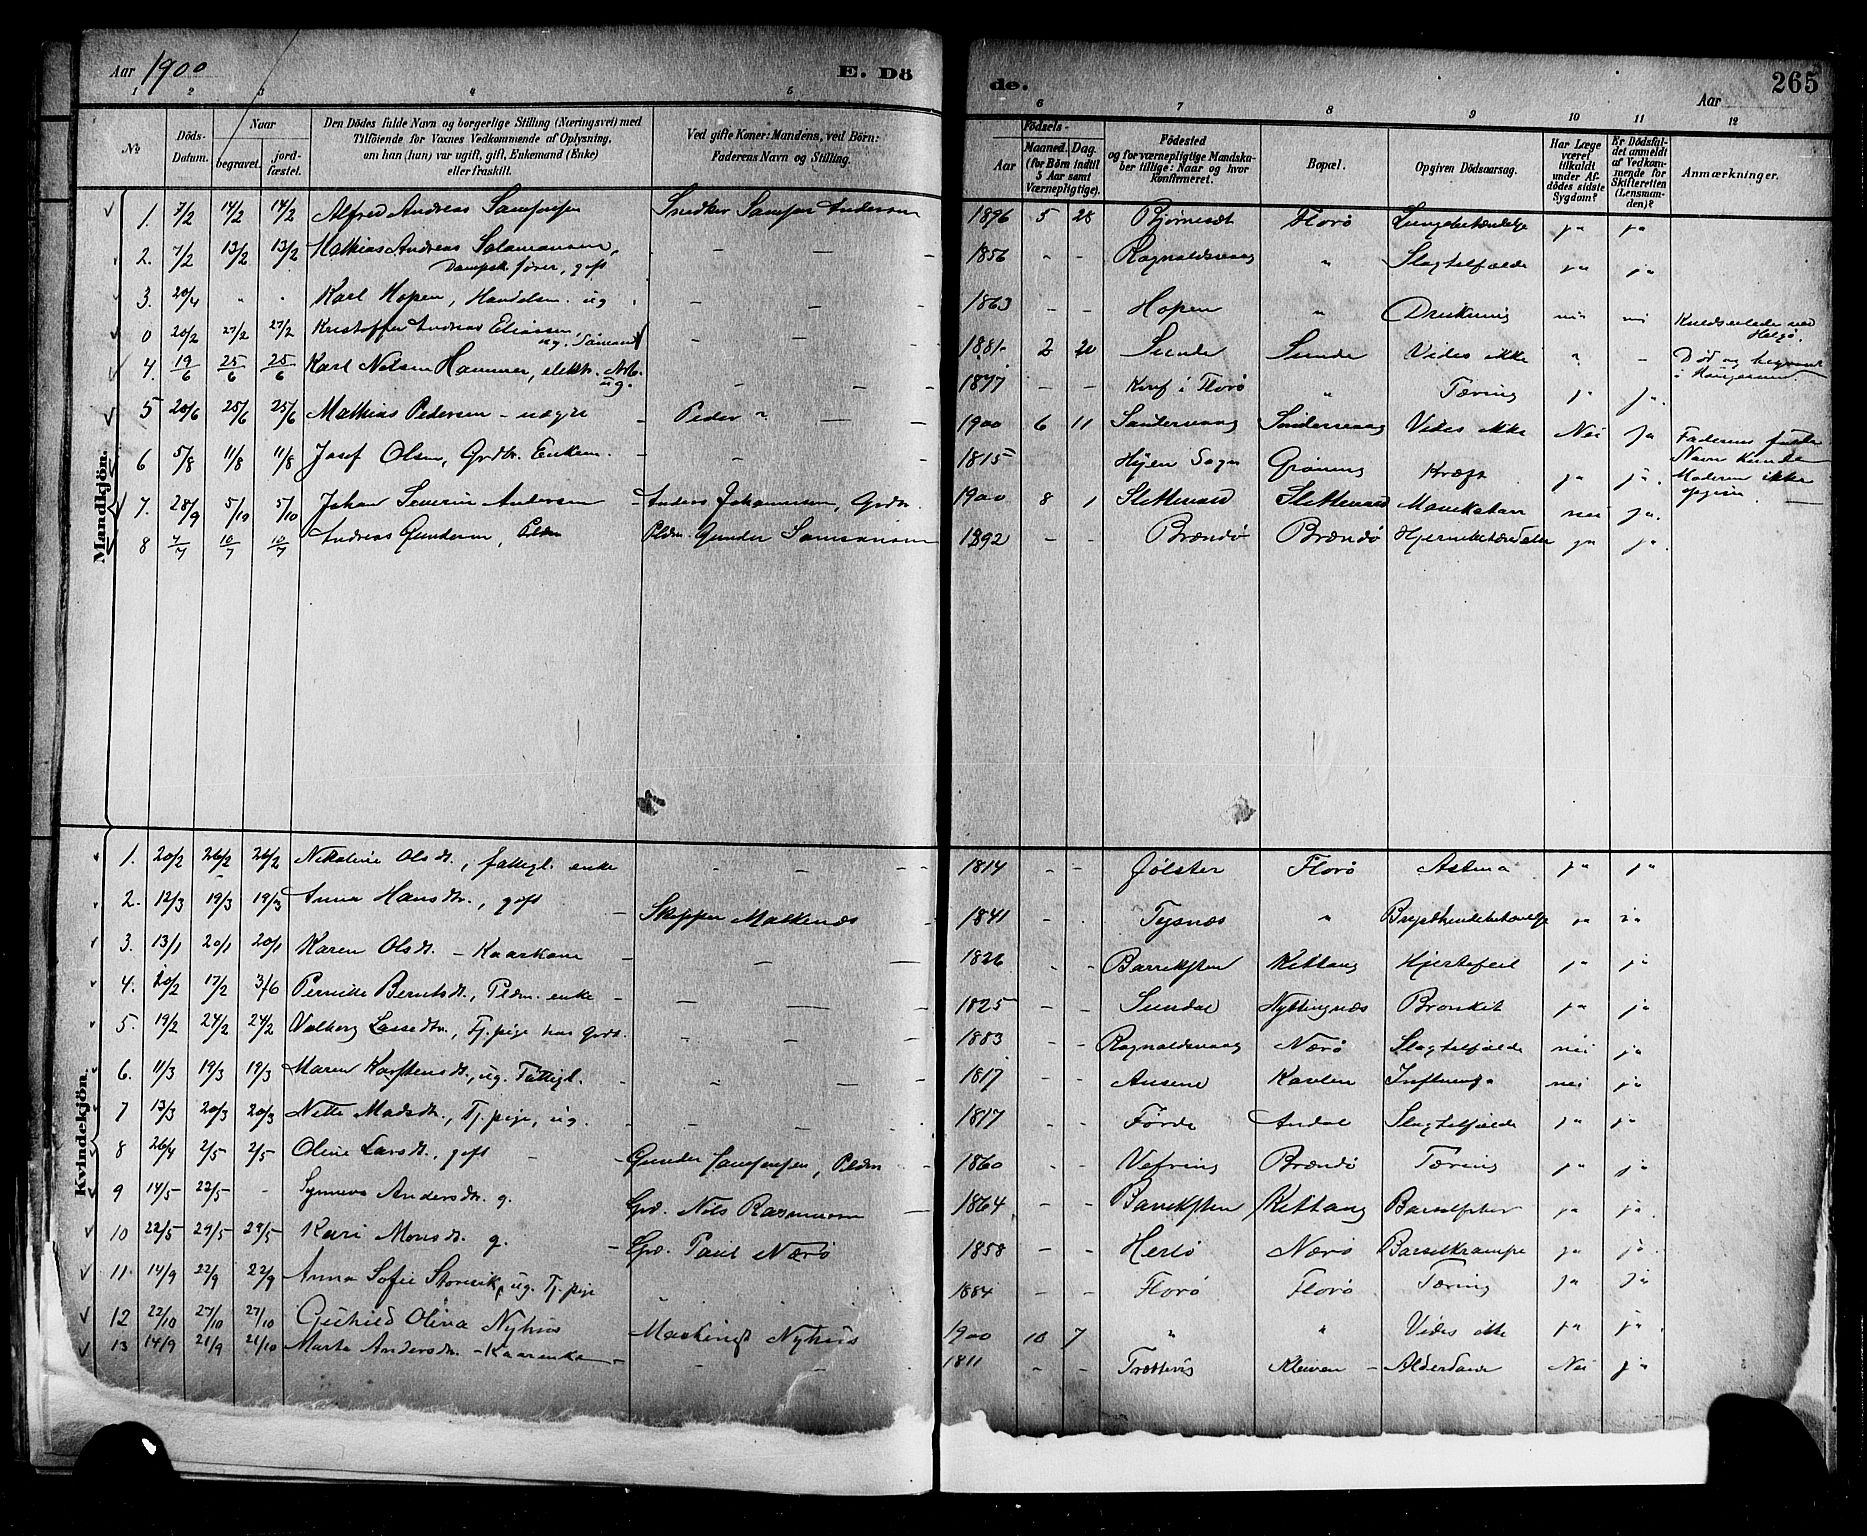 Aar 1900 E. Dö de. Aar 265
1 2 3 4 5 6 7 8 9 10 11 12
No Döds-Datum. Naar begravet. jordfæstet. Den Dödes fulde Navn og borgerlige Stilling (Næringsvei) med Tilföiende for Voxnes Vedkommende af Oplysning, om han (hun) var ugift, gift, Enkemand (Enke) eller fraskilt. Ved gifte Koner: Mandens, ved Börn: Faderens Navn og Stilling. Födsels- Aar Maaned. Dag. (for Börn indtil 5 Aar samt Værnepligtige). Födested og for værnepligtige Mandskaber tillige: Naar og hvor Konfirmeret. Bopæl. Opgiven Dödsaarsag. Har Læge været tilkaldt under Afdödes sidste Sygdom? Er Dödsfaldet anmeldt af Vedkommende for Skifteretten (Lensmanden)? Anmærkninger.
Mandkjön.
1. 7/2 14/2 14/2 Alfred Andreas Samsonsen Snedker Andersen 1896 5 28 Florø ja ja
2. 7/2 13/2 13/2 Mathias Andreas Salamonsen, Dampsk.fører, gift - - 1856 - - Ragnaldsvaag " Slagtilfælde ja ja
3. 20/4 " " Karl Hopen, Handelsm. ug - - 1863 - - Hopen " Drukning nei
0 20/2 27/2 27/2 Kristoffer Andreas Eliassen, ug. Sømand - - 1881 2 20 Sunde Sunde Vides ikke " -
4. 19/6 25/6 25/6 Karl Nilsen Hammer, elektr. Arb. ug. - - 1877 - - Konf i Florø " Tæring ja ja.
5 20/6 25/6 25/6 Mathias Pedersen - uægte Peder ? - 1900 6 11 Sandersvaag Vides ikke Nei Ja Faderens fulde Navn kunde Moderen ikke opgive
6 5/8 11/8 11/8 Josef Olsen, Grdbr. Enkem. - - 1815 - - Grøning Kræft ja ja.
7. 28/9 5/10 5/10 Johan Severin Andersen Anders Johannesen, Grdbr. 1900 8 1 Slettevold Slettevold nei ja.
8 7/7 10/7 10/7 Andreas Gundersen, Pldm Pldm. Gunder Samsonsen 1892 - - Brandø Brandø ja ja.
Kvindekjön.
1. 20/2 26/2 26/2 Nikoline Olsdt., fattigl. enke - - 1814 - - Jølster Florø Astma ja ja
2. 12/3 19/3 19/3 Anna Hansdtr., gift - Skipper 1841 - Tysnæs " ja ja
3. 13/1 20/1 20/1 Karen Olsdt. - Kaarkone - - 1826 - - Barreksten Kittang Hjertefeil ja ja
4. 20/2 17/2 3/6 Pernille Berntsdt., Pldm. enke - - 1825 - - Sundal Nyttingnæs Bronkit ja ja
5. 19/2 24/2 24/2 Valborg Lassedtr., Tj.pige hos Grdb. - - 1883 - - Ragnaldsvaag Nærø Slagtilfælde nei ja
6. 11/3 19/3 19/3 Maren Karstensdt., ug. Fattigl. - - 1817 - - Ausene nei ja
7 13/3 20/3 20/3 Nille Madsdt., Tj.pige, ug. - - 1817 - - Førde Andal Slagtilfælde ja ja
8 26/4 2/5 2/5 Oline Larsdt., gift - Gunder Samsonsen, Pldm 1860 - - Vefring Brandø Tæring ja ja
9 14/5 22/5 - Synneva Andersdt. g. Grd. Nils Rasmussen 1864 - - Barreksten Kittang Barselfeber ja ja.
10 22/5 29/5 29/5 Kari Monsdt. g. - Grd. Paul Nærø 1858 - - Herlø Nærø Barselkrampe ja ja
11. 14/9 22/9 22/9 Anna Sofie Storevik, ug. Tj.pige 1884 - - Florø Florø Tæring ja ja
12 22/10 27/10 27/10 Guthild Olina Nyhus Maskinist Nyhus 1900 10 7 " " Vides ikke ja ja
13 14/9 21/9 21/10 Marta Andersdt. - Kaarenke - - 1811 - - Kleiven - Alderdom Nei ja